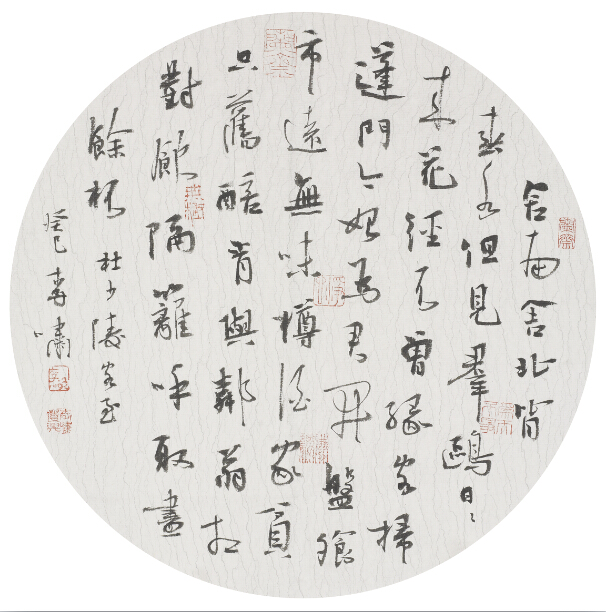 舍南舍北皆
春水但見羣鷗日〻
来花徑不曾緣客掃
蓬門今始為君開盤飧
市遠無味樽酒家貧
只舊醅肯與鄰翁相
對飲隔籬呼取盡
餘杯 杜少陵客至
癸巳 嘯